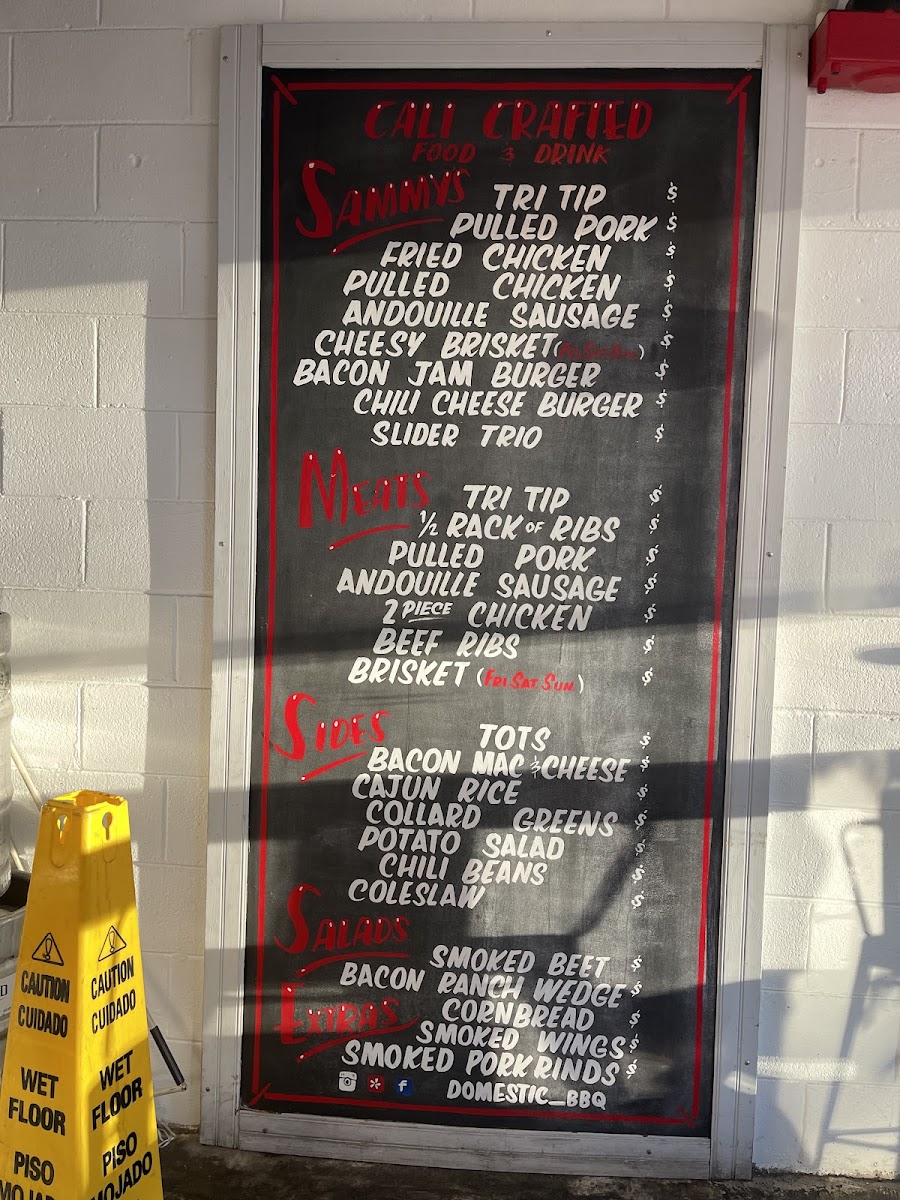 CALI CRAFTED
FOOD & DRINK
SAMMYS
TRI TIP $
PULLED PORK $
FRIED CHICKEN $
PULLED CHICKEN $
ANDOUILLE SAUSAGE $
CHEESY BRISKET (FRI SAT SUN) $
BACON JAM BURGER $
CHILI CHEESE BURGER $
SLIDER TRIO $
MEATS
TRI TIP $
1/2 RACK OF RIBS $
PULLED PORK $
ANDOUILLE SAUSAGE $
2 PIECE CHICKEN $
BEEF RIBS $
BRISKET (FRI SAT SUN) $
SIDES
TOTS $
BACON MAC & CHEESE $
CAJUN RICE $
COLLARD GREENS $
POTATO SALAD $
CHILI BEANS $
COLESLAW $
SALADS
SMOKED BEET $
BACON RANCH WEDGE $
EXTRAS
CORNBREAD $
SMOKED WINGS $
SMOKED PORK RINDS $
DOMESTIC_BBQ
CAUTION
CUIDADO
WET
FLOOR
PISO
MOJADO
CAUTION
CUIDADO
WET
FLOOR
PISO
MOJADO